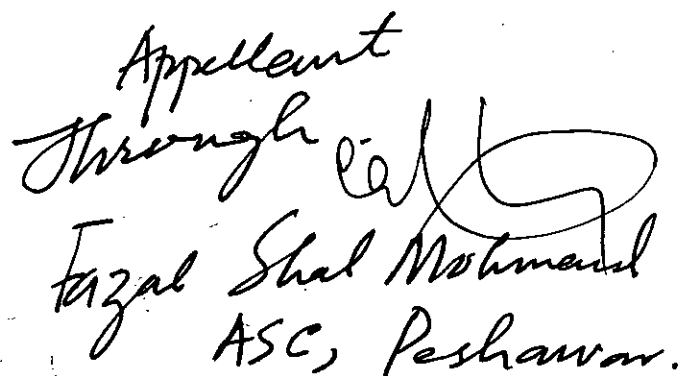 Appellant
Through
Fazal Shah Mohmand
ASC, Peshawar.